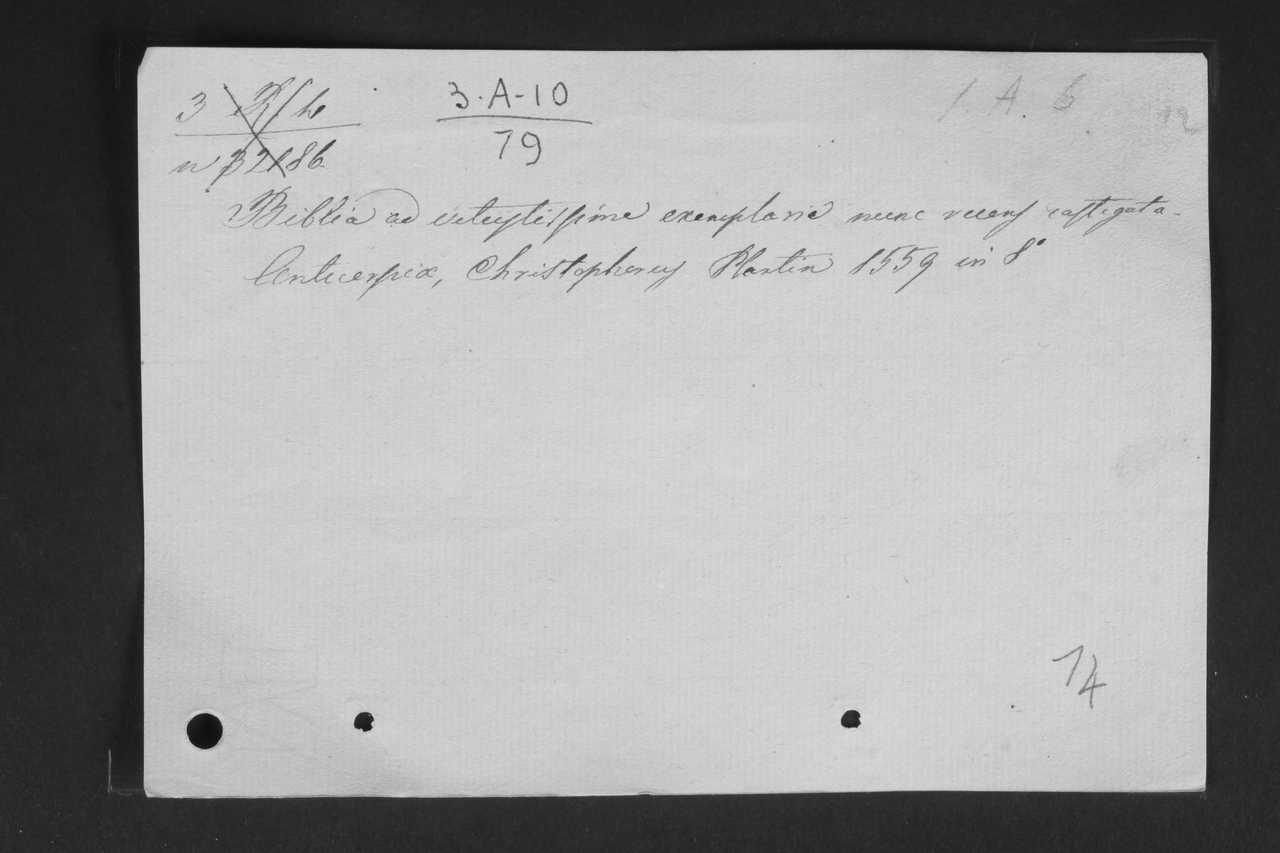 3 R/h
3-A-10
79
1. A. 6
12
nº 32186
Biblia ad vetustissima exemplaria nunc recens castigata.
Antverpiæ, Christophorus Plantin 1559 in 8°
14